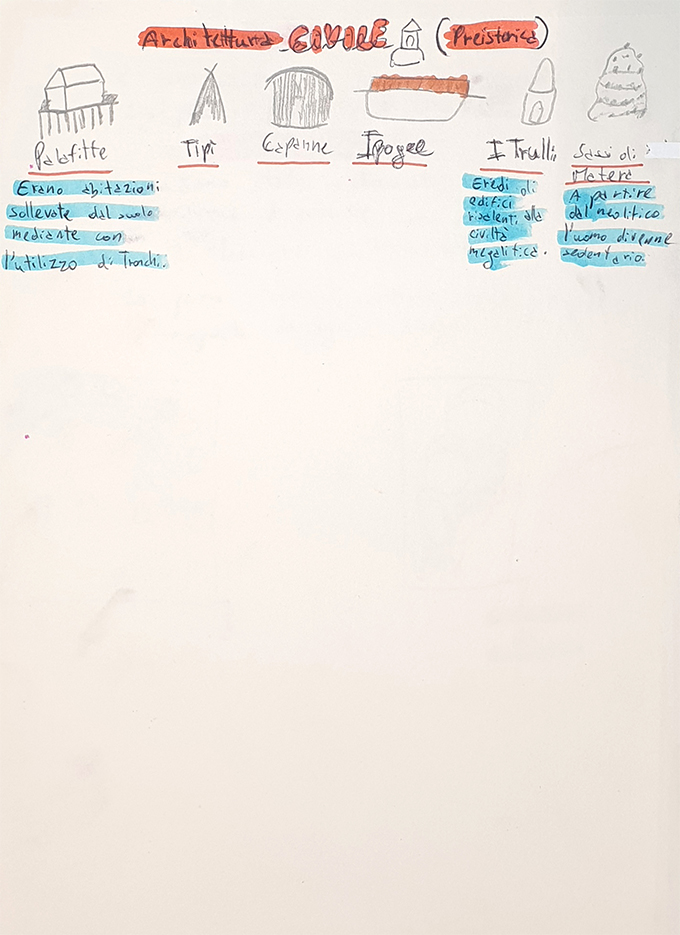 Architettura CIVILE (Preistorica)
Palafitte
Tipi
Capanne
Ipogee
I Trulli
Sassi di
Matera
Erano abitazioni
sollevate dal suolo
mediante con
l'utilizzo di Tronchi.
Eredi di
edifici
risalenti alla
civiltà
megalitica.
A partire
dal neolitico
l'uomo divenne
sedentario